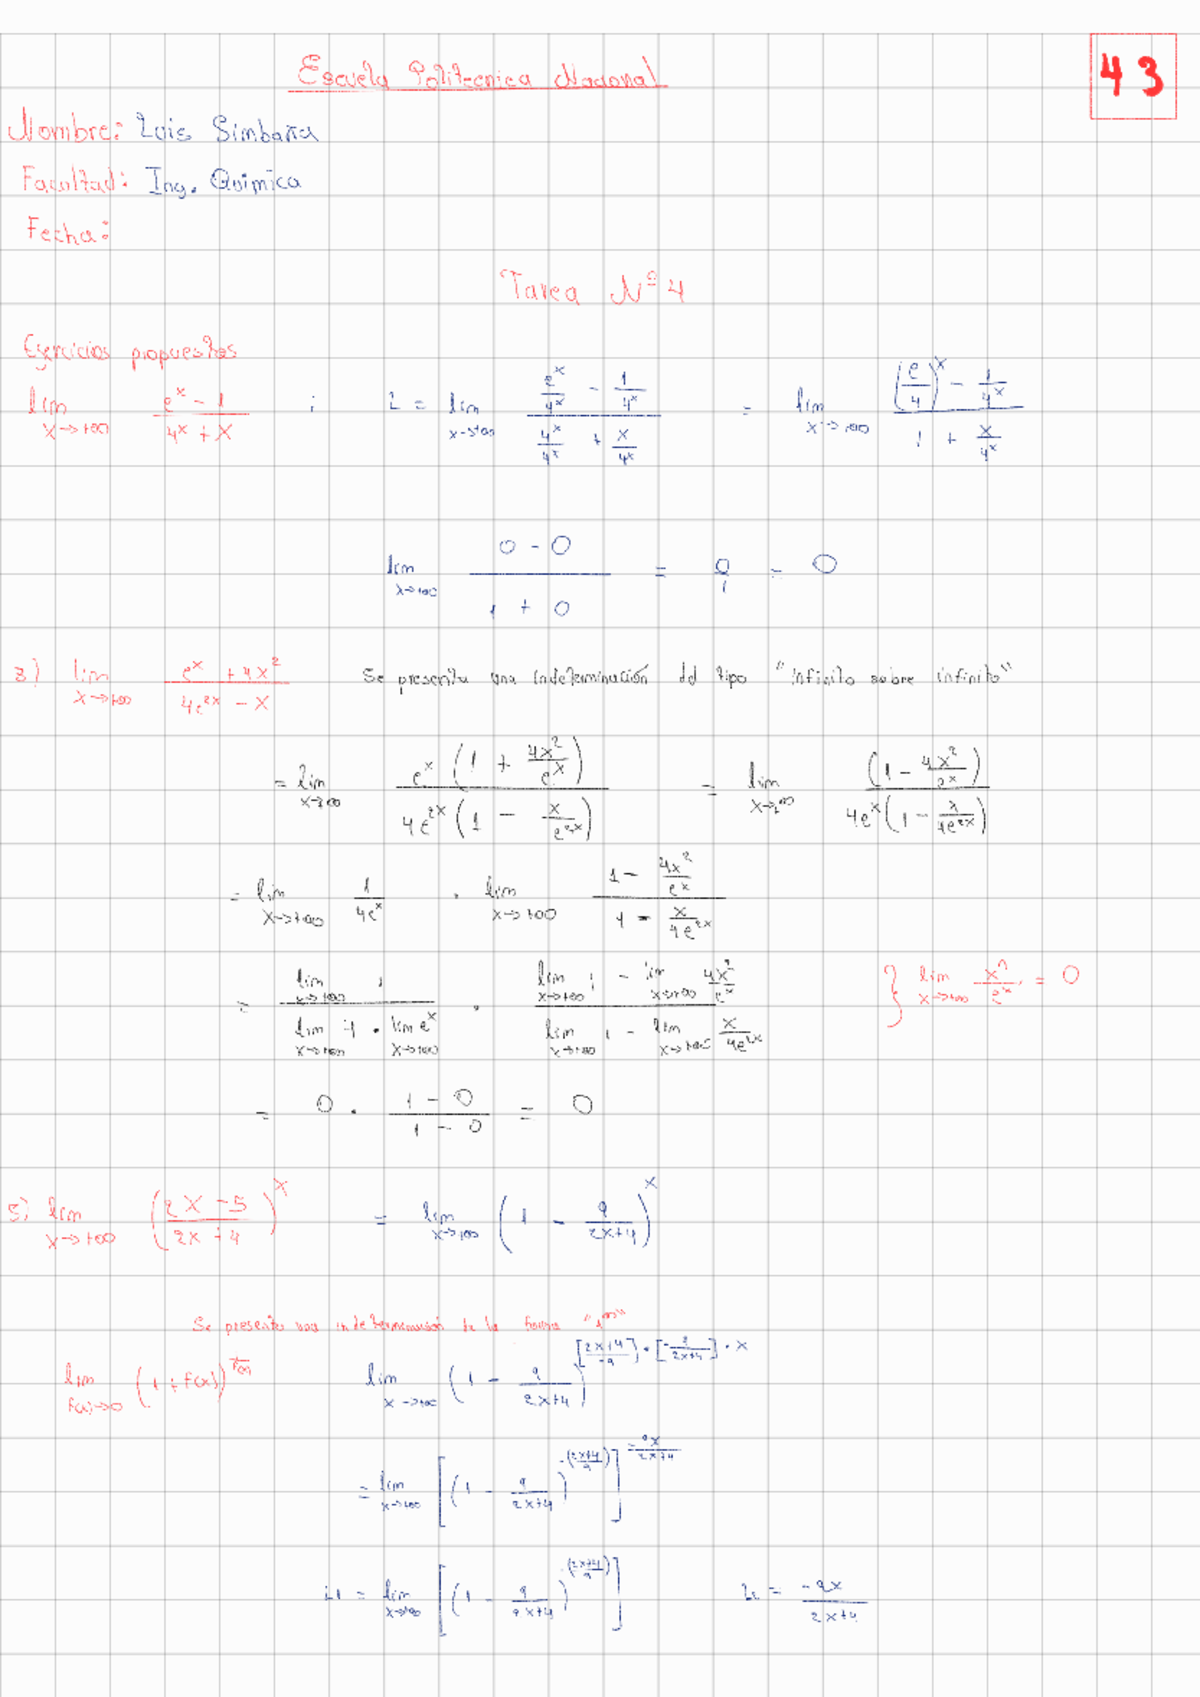 Escuela Politecnica Nacional
43
Nombre: Luis Simbaña
Facultad: Ing. Química
Fecha:
Tarea Nº 4
Ejercicios propuestos
lim x→+∞ (e^x - 1)/(4^x + x) ; L = lim x→+∞ (e^x/4^x - 1/4^x)/(4^x/4^x + x/4^x) = lim x→+∞ ((e/4)^x - 1/4^x)/(1 + x/4^x)
lim x→+∞ (0 - 0)/(1 + 0) = 0/1 = 0
3) lim x→+∞ (e^x + 4x^2)/(4e^2x - x) Se presenta una indeterminación del tipo "infinito sobre infinito"
= lim x→+∞ e^x (1 + 4x^2/e^x)/4e^2x (1 - x/e^2x) = lim x→+∞ (1 - 4x^2/e^x)/4e^x (1 - x/4e^2x)
= lim x→+∞ 1/4e^x · lim x→+∞ (1 - 4x^2/e^x)/(1 - x/4e^2x)
= (lim x→+∞ 1)/(lim x→+∞ 4 · lim x→+∞ e^x) · (lim x→+∞ 1 - lim x→+∞ 4x^2/e^x)/(lim x→+∞ 1 - lim x→+∞ x/4e^2x) } lim x→+∞ x^n/e^x = 0
= 0 · (1 - 0)/(1 - 0) = 0
5) lim x→+∞ ((2x - 5)/(2x + 4))^x = lim x→+∞ (1 - 9/(2x+4))^x
Se presenta una indeterminación de la forma "1^∞"
lim f(x)→0 (1 + f(x))^(1/f(x)) lim x→+∞ (1 - 9/(2x+4))^([(2x+4)/-9] · [-9/(2x+4)] · x)
= lim x→+∞ [(1 - 9/(2x+4))^(-(2x+4)/9)]^(-9x/(2x+4))
L1 = lim x→+∞ [(1 - 9/(2x+4))^(-(2x+4)/9)] L2 = -9x/(2x+4)